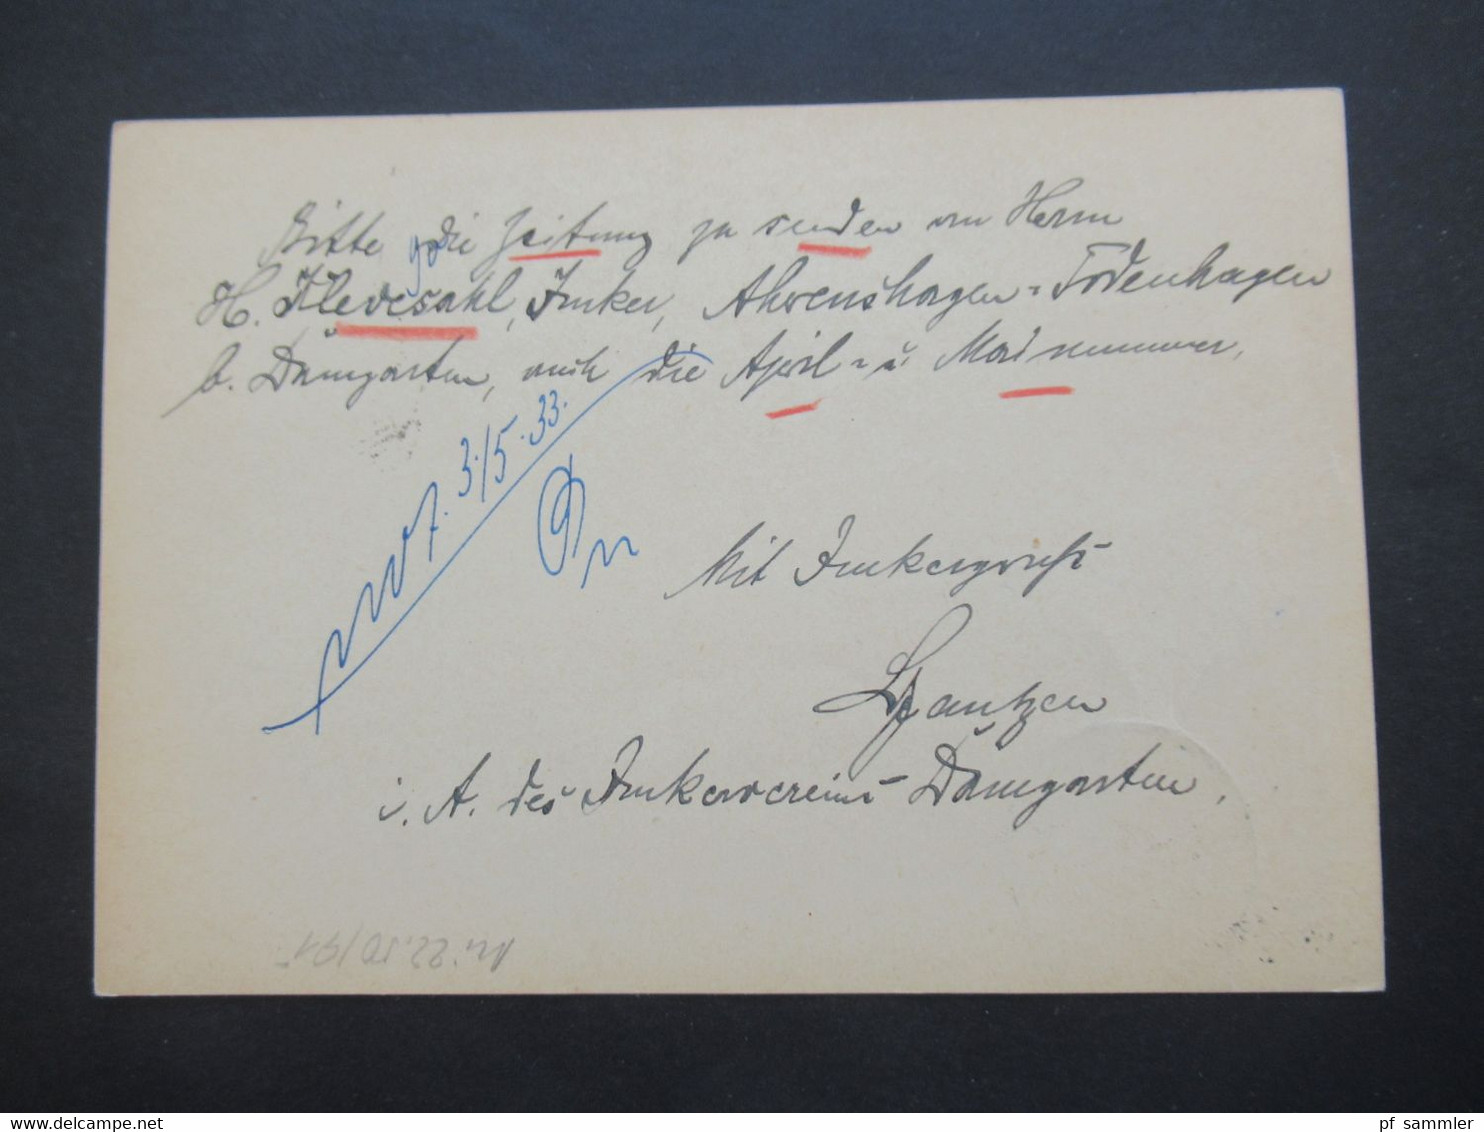 Bitte die Zeitung zu senden an Herrn
H. Klevesahl, Imker, Ahrenshagen-Todenhagen
b. Damgarten, auch die April- u. Mainummer.
3./5.33.
Mit Imkergruß
Gantzen
i. A. des Imkervereins Damgarten.
22.50/95
pf sammler
www.delcampe.net